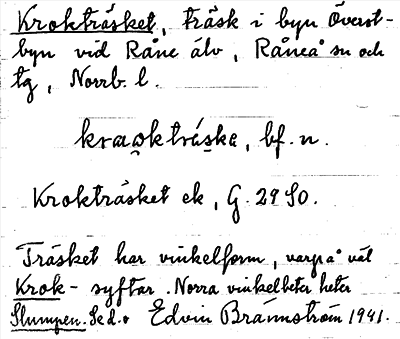 Krokträsket, träsk i byn Överst-
byn vid Råne älv, Råneå sn och
tg, Norrb. l.
kraoktráske, bf. n.
Krokträsket ek, G. 29 SO.
Träsket har vinkelform, varpå väl
Krok- syftar. Norra vinkelbeter heter
Slumpen. Se d. o Edvin Brännström 1941.